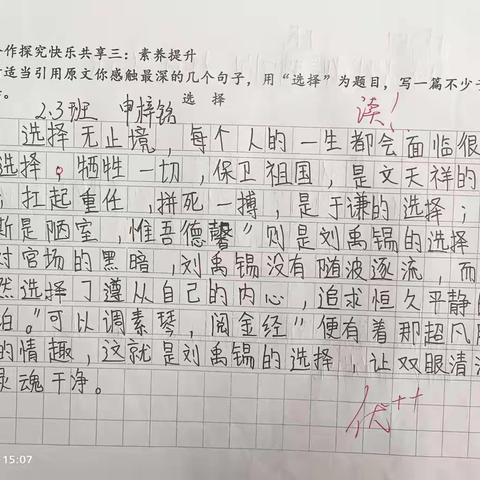 作探究快乐共享三：素养提升
适当引用原文你感触最深的几个句子，用“选择”为题目，写一篇不少于
2.3班 申梓铭 选择 读！
选择无止境，每个人的一生都会面临很
选择，牺牲一切，保卫祖国，是文天祥的
；扛起重任，拼死一搏，是于谦的选择；
斯是陋室，惟吾德馨”则是刘禹锡的选择
对官场的黑暗，刘禹锡没有随波逐流，而
然选择了遵从自己的内心，追求恒久平静的
泊。“可以调素琴，阅金经”便有着那超凡
的情趣，这就是刘禹锡的选择，让双眼清
灵魂干净。
优++
15:07